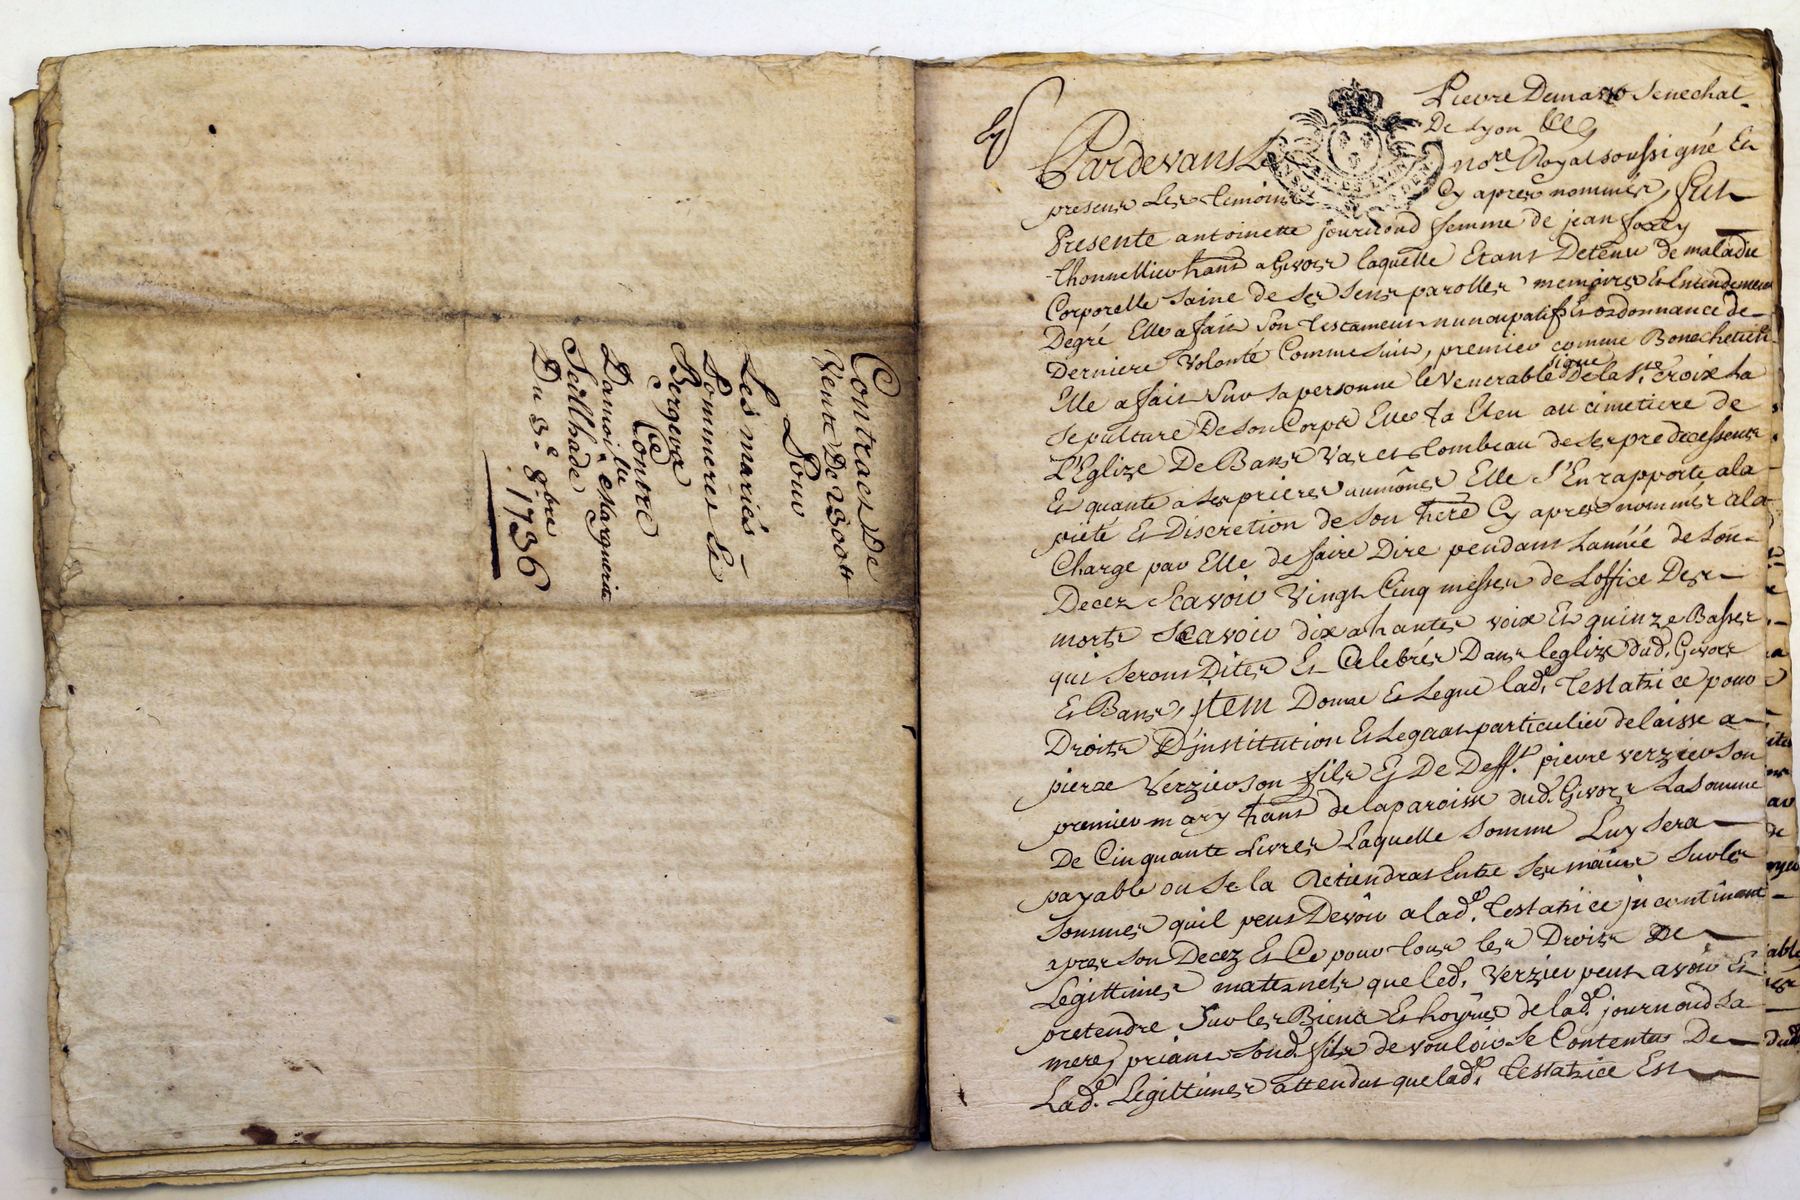 Contract De
Vente De 2300tt
Pour
Les mariés
Pommerer Et
Bergeron
Contre
Damoi.lle Marguerite
Seillhade
Du 3.e 8bre 1736
Pierre Demasso Senechal
De Lyon
Pardevant Le nore Royal soussigné Et
present Les temoins Cy apres nommés, fut
Presente antoinette journoud femme de jean
Thonnellier hant a Givors laquelle Etant Detenüe de maladie
Corporelle saine de ses sens parolles memoires Et Entendement
Degré Elle a fait son testament nuncupatif Et ordonnance de
Derniere Volonté Comme suit, premier comme Bonne chetienne
Elle a fait sur sa personne le Venerable signe De la Ste croix La
sepulture De son Corps Elle la Eleu au cimetiere de
L'Eglize De Bans Vas et tombeau de ses predecesseurs
Et quante a ses prieres aumônes Elle s'En rapporte a la
pieté Et Discretion de son here Cy apres nommés a la
Charge par Elle de faire Dire pendant Lannéé de son
Decez Scavoir Vingt Cinq messes de Loffice Des
morts Scavoir dix a hautes voix Et quinze Basses
qui seront Dites Et Celebrés Dans leglize dud. Givors
Et Bans, jtem Donne Et Legue lade. Testatrice pour
Droits D'institution Et Legaat particulier delaisse a
pierre Verzier son fils Et De Defft. pierre verzier son
premier mary hant de la paroisse dud. Givors La Somme
De Cinquante Livres Laquelle Somme Luy sera
payable ou se la Retiendrat Entre ses mains sur les
sommes quil peut Devoir a lade. Testatrice jncontinent
apres son Decez Et Ce pour tous les Droits De
Legittimes maternels que led. Verzier peut avoir Et
pretendre sur les Biens Et hoyrie de lade. journoud sa
mere, priant sond. fils de vouloir se Contenter De
Lade. Legittimes attendut que lade. Testatrice Est